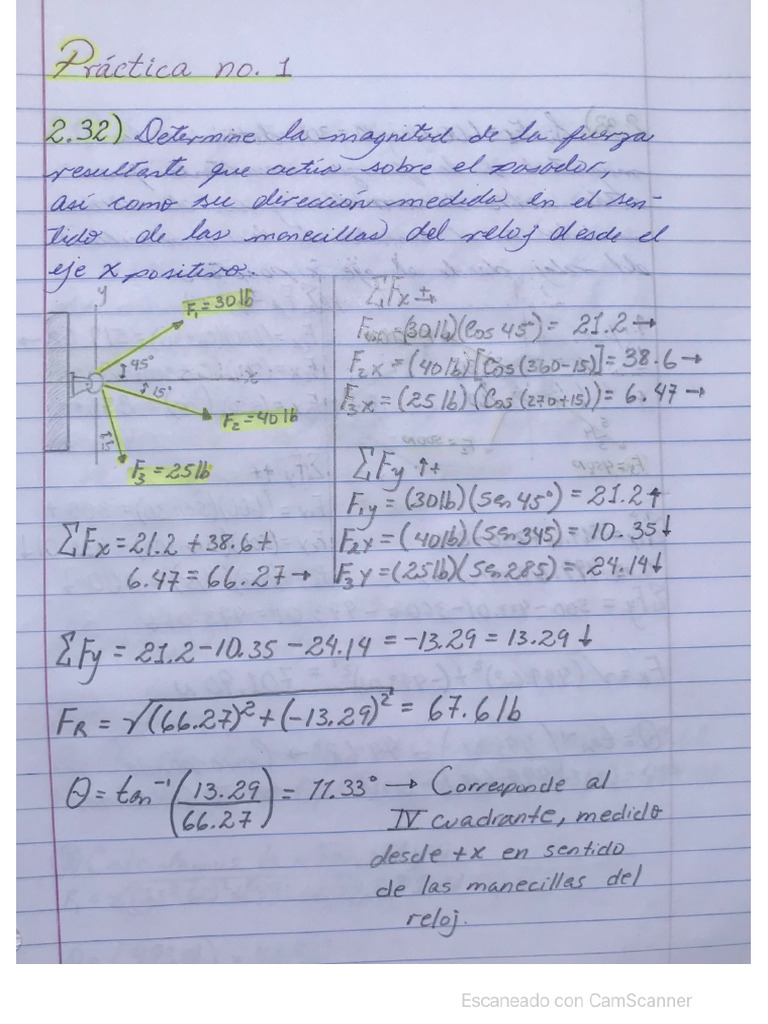 Práctica no. 1
2.32) Determine la magnitud de la fuerza
resultante que actúa sobre el pasador,
así como su dirección medida en el sen-
tido de las manecillas del reloj desde el
eje x positivo.
y
F₁ = 30 lb
45°
x
15°
F₂ = 40 lb
15°
F₃ = 25 lb
ΣFx +→
F₁x = (30 lb)(Cos 45°) = 21.2 →
F₂x = (40 lb)[Cos (360-15)] = 38.6 →
F₃x = (25 lb)(Cos (270+15)) = 6.47 →
ΣFy ↑+
F₁y = (30 lb)(Sen 45°) = 21.2 ↑
F₂x = (40 lb)(Sen 345) = 10.35 ↓
F₃y = (25 lb)(Sen 285) = 24.14 ↓
ΣFx = 21.2 + 38.6 +
6.47 = 66.27 →
ΣFy = 21.2 - 10.35 - 24.14 = -13.29 = 13.29 ↓
FR = √(66.27)² + (-13.29)² = 67.6 lb
θ = tan⁻¹ (13.29/66.27) = 11.33° → Corresponde al
IV cuadrante, medido
desde +x en sentido
de las manecillas del
reloj.
Escaneado con CamScanner